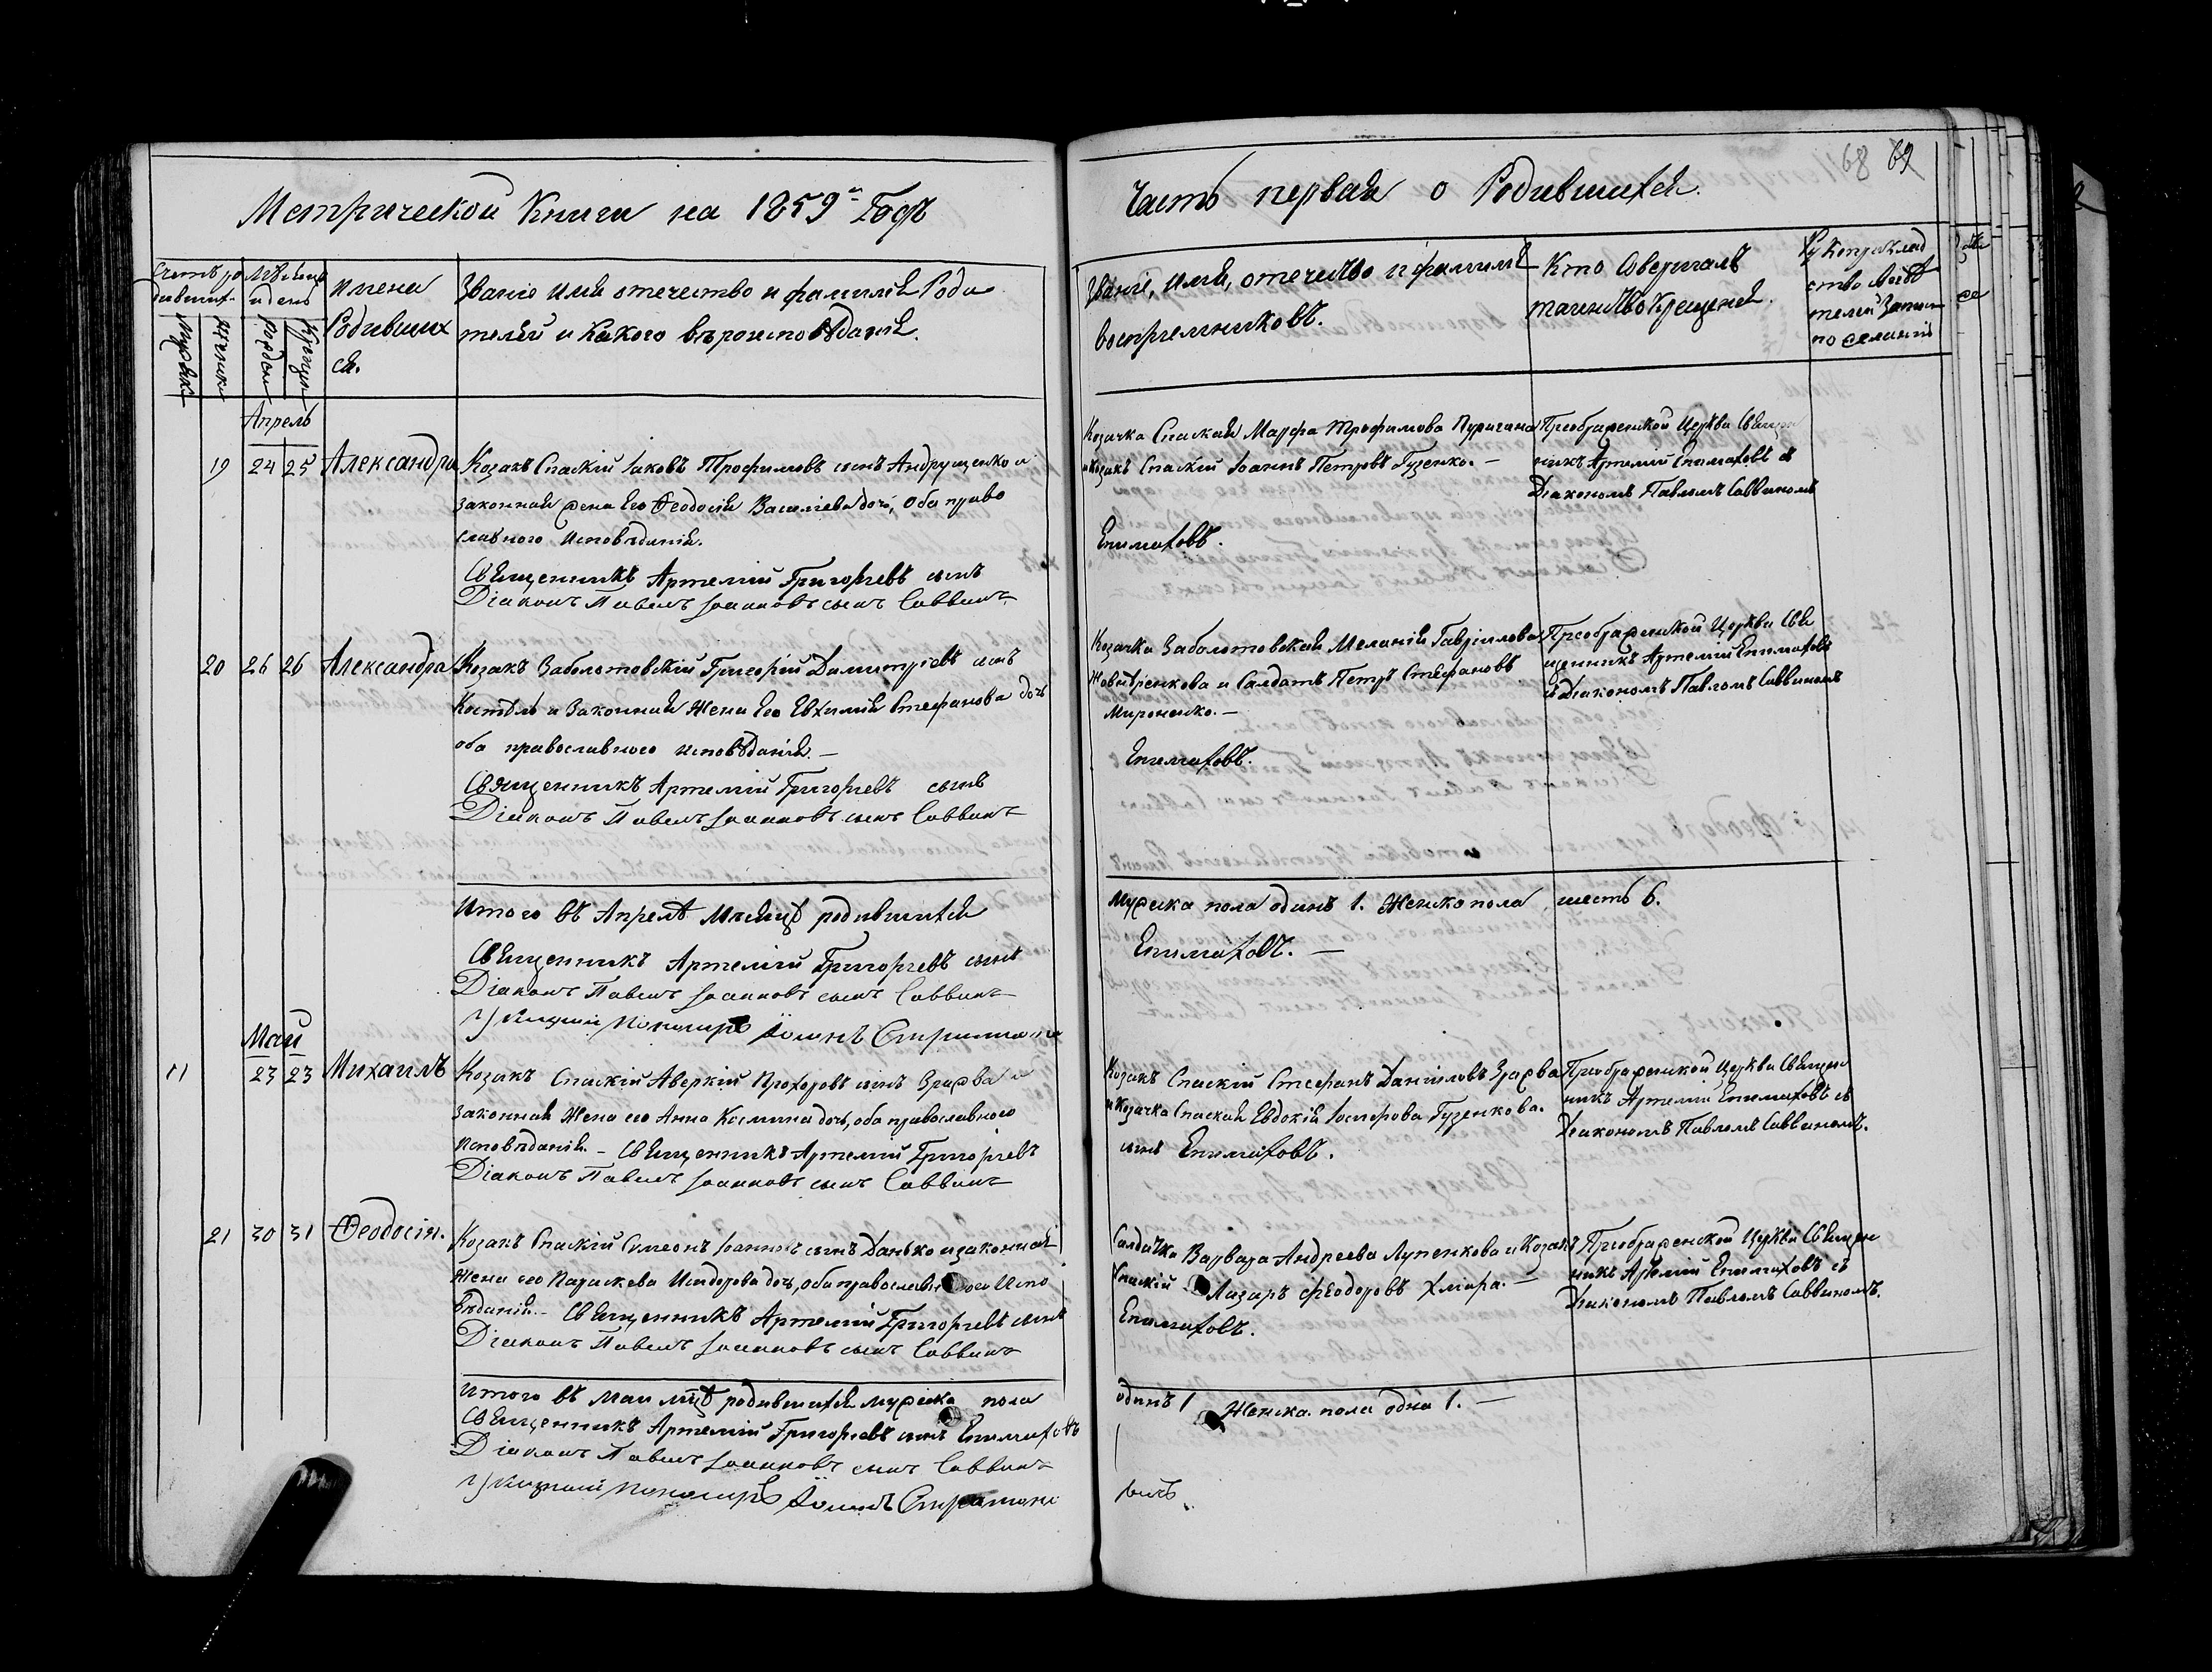 68 69
Метрической Книги на 1859й Годъ
Часть первая о Родившихся.
Счетъ ро
дивших.
Мужеска
Женска
Мѣсяцъ
и день
Рожден
Крещен
Имена
Родивших
ся.
Званіе имя отечество и фамилія Роди
телей и Какого вѣроисповѣданія.
Званіе, имя, отечество и фамилія
воспріемниковъ.
Кто Совершалъ
таинство Крещенія.
Рукоприклад
ство свидѣ
телей Записи
по желанію
Апрель
19 24 25 Александра
Козакъ Спаскій Іаковъ Трофимовъ сынъ Андрущенко и
законная жена Его Ѳеодосія Васильева дочь, Оба право
славного Исповѣданія.
Священникъ Артемій Григорьевъ сынъ
Діаконъ Павелъ Іоанновъ сынъ Саввинъ
Козачка Спаская Марфа Трофимова
и Козакъ Спаскій Іоаннъ Петровъ Гузенко. —
Епимаховъ.
Преображенской Церкви Свящ
никъ Артемій Епимаховъ съ
Діакономъ Павломъ Саввиномъ
20 26 26 Александра
Козакъ Заболотовскій Григорій Димитріевъ сынъ
и Законная Жена Его Евхимія Стефанова дочь
оба православного исповѣданія. —
Священникъ Артемій Григорьевъ сынъ
Діаконъ Павелъ Іоанновъ сынъ Саввинъ
Козачка Заболотовская Меланія Гавріилова
и Салдатъ Петръ Стефановъ
Мироненко. —
Епимаховъ.
Преображенской Церкви Свя
щенникъ Артемій Епимаховъ
съ Діакономъ Павломъ Саввиномъ
Итого въ Апрелѣ Месяцѣ родившихся
Мужеска пола одинъ 1. Женска пола шесть 6.
Священникъ Артемій Григорьевъ сынъ
Епимаховъ. —
Діаконъ Павелъ Іоанновъ сынъ Саввинъ
Пономарь Іоаннъ
Май
11 23 23 Михаилъ
Козакъ Спаскій Аверкій Прохоровъ сынъ Зражва и
законная Жена его Анна Косьмина дочь, оба православного
Исповѣданія. — Священникъ Артемій Григорьевъ
Діаконъ Павелъ Іоанновъ сынъ Саввинъ
Козакъ Спаскій Стефанъ Даніиловъ Зражва
и Козачка Спаская Евдокія Іосифова Гузенкова.
сынъ Епимаховъ.
Преображенской Церкви Священ
никъ Артемій Епимаховъ съ
Діакономъ Павломъ Саввиномъ.
21 30 31 Ѳеодосія.
Козакъ Спаскій Симеонъ Іоанновъ сынъ Данько и законная
Жена его Параскева Исидорова дочь, оба православного Испо
вѣданія. — Священникъ Артемій Григорьевъ сынъ
Діаконъ Павелъ Іоанновъ сынъ Саввинъ
Салдачка Варвара Андреева Лупенкова и Козакъ
Спаскій Лазарь Феодоровъ Хмара. —
Епимаховъ.
Преображенской Церкви Священ
никъ Артемій Епимаховъ съ
Діакономъ Павломъ Саввиномъ.
Итого въ Маи мцѣ родившихся мужеска пола
одинъ 1 Женска пола одна 1. —
Священникъ Артемій Григорьевъ сынъ Епимаховъ
Діаконъ Павелъ Іоанновъ сынъ Саввинъ
Пономарь Іоаннъ